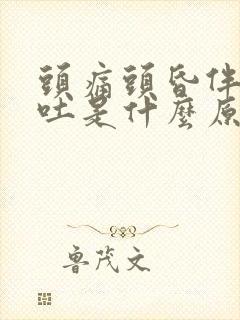 頭痛頭昏伴
吐是什麼原
魯茂文